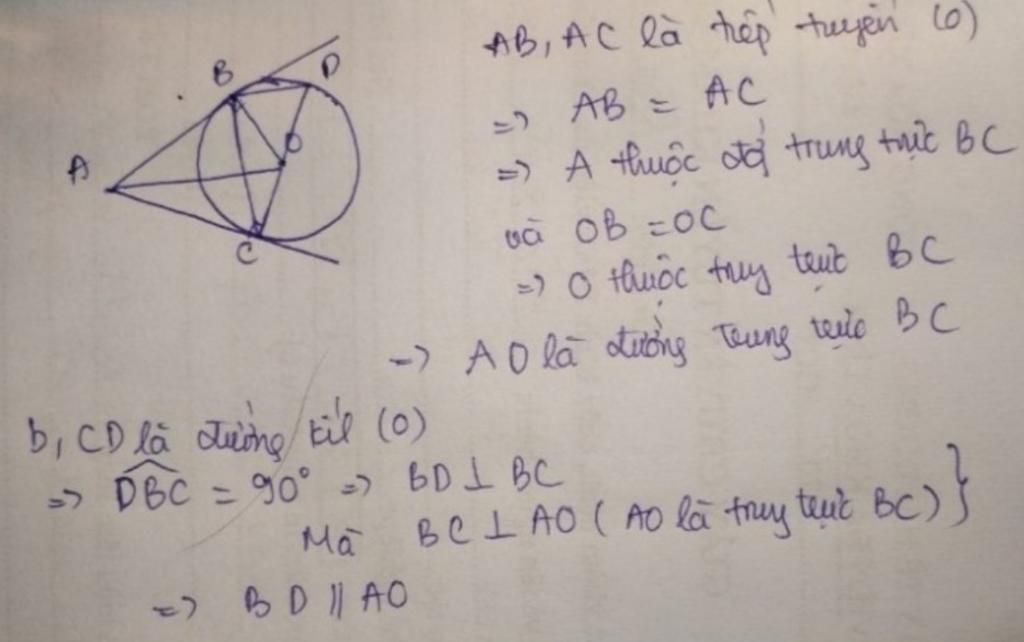 B D
A O
C
AB, AC là tiếp tuyến (O)
=> AB = AC
=> A thuộc đg trung trực BC
và OB = OC
=> O thuộc trung trực BC
=> AO là đường trung trực BC
b, CD là đường kít (O)
=> \widehat{DBC} = 90° => BD ⊥ BC
Mà BC ⊥ AO (AO là trung trực BC) }
=> BD ∥ AO